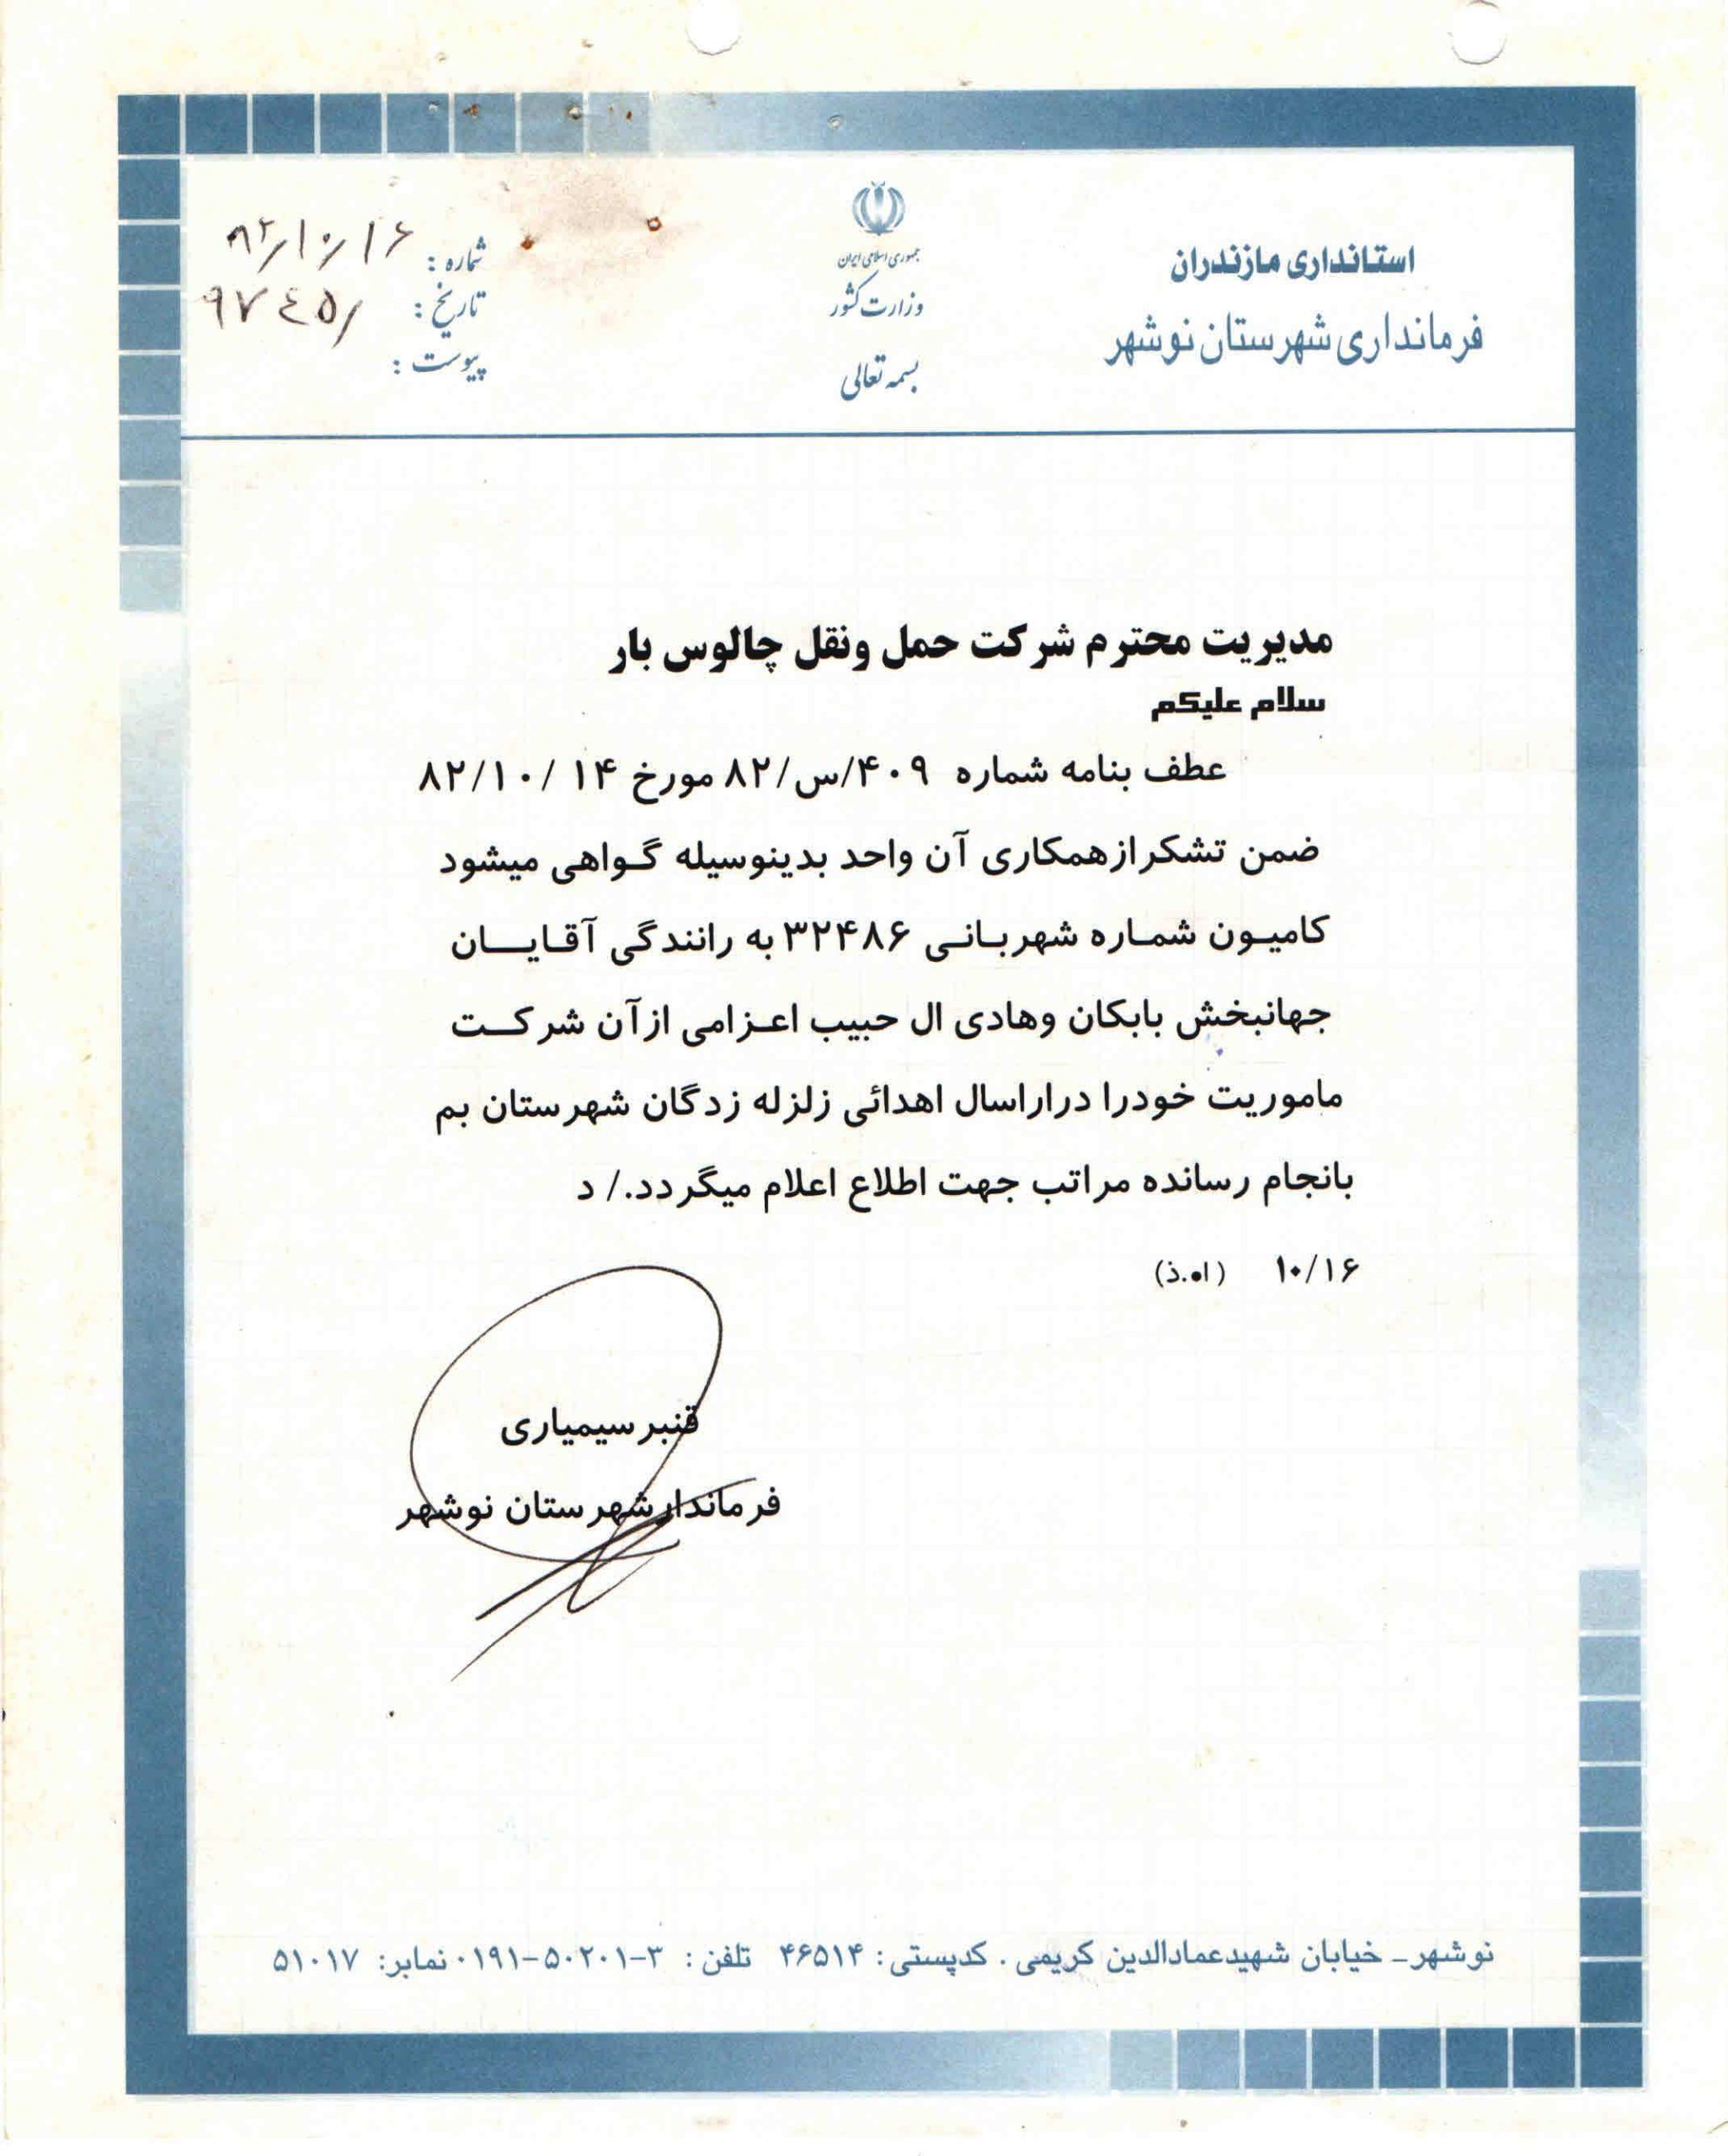 استانداری مازندران
فرمانداری شهرستان نوشهر
جمهوری اسلامی ایران
وزارت کشور
بسمه تعالی
شماره : ۸۲/۱۰/۱۶
تاریخ : ۹۷۴۵/
پیوست :
مدیریت محترم شرکت حمل ونقل چالوس بار
سلام علیکم
عطف بنامه شماره ۴۰۹/س/۸۲ مورخ ۱۴ /۸۲/۱۰
ضمن تشکرازهمکاری آن واحد بدینوسیله گواهی میشود
کامیون شماره شهربانی ۳۲۴۸۶ به رانندگی آقایان
جهانبخش بابکان وهادی ال حبیب اعزامی ازآن شرکت
ماموریت خودرا درارسال اهدائی زلزله زدگان شهرستان بم
بانجام رسانده مراتب جهت اطلاع اعلام میگردد./ د
۱۰/۱۶ (اه.ذ)
قنبرسیمیاری
فرماندارشهرستان نوشهر
نوشهر- خیابان شهیدعمادالدین کریمی . کدپستی : ۴۶۵۱۴ تلفن : ۳-۵۰۲۰۱-۰۱۹۱ نمابر: ۵۱۰۱۷